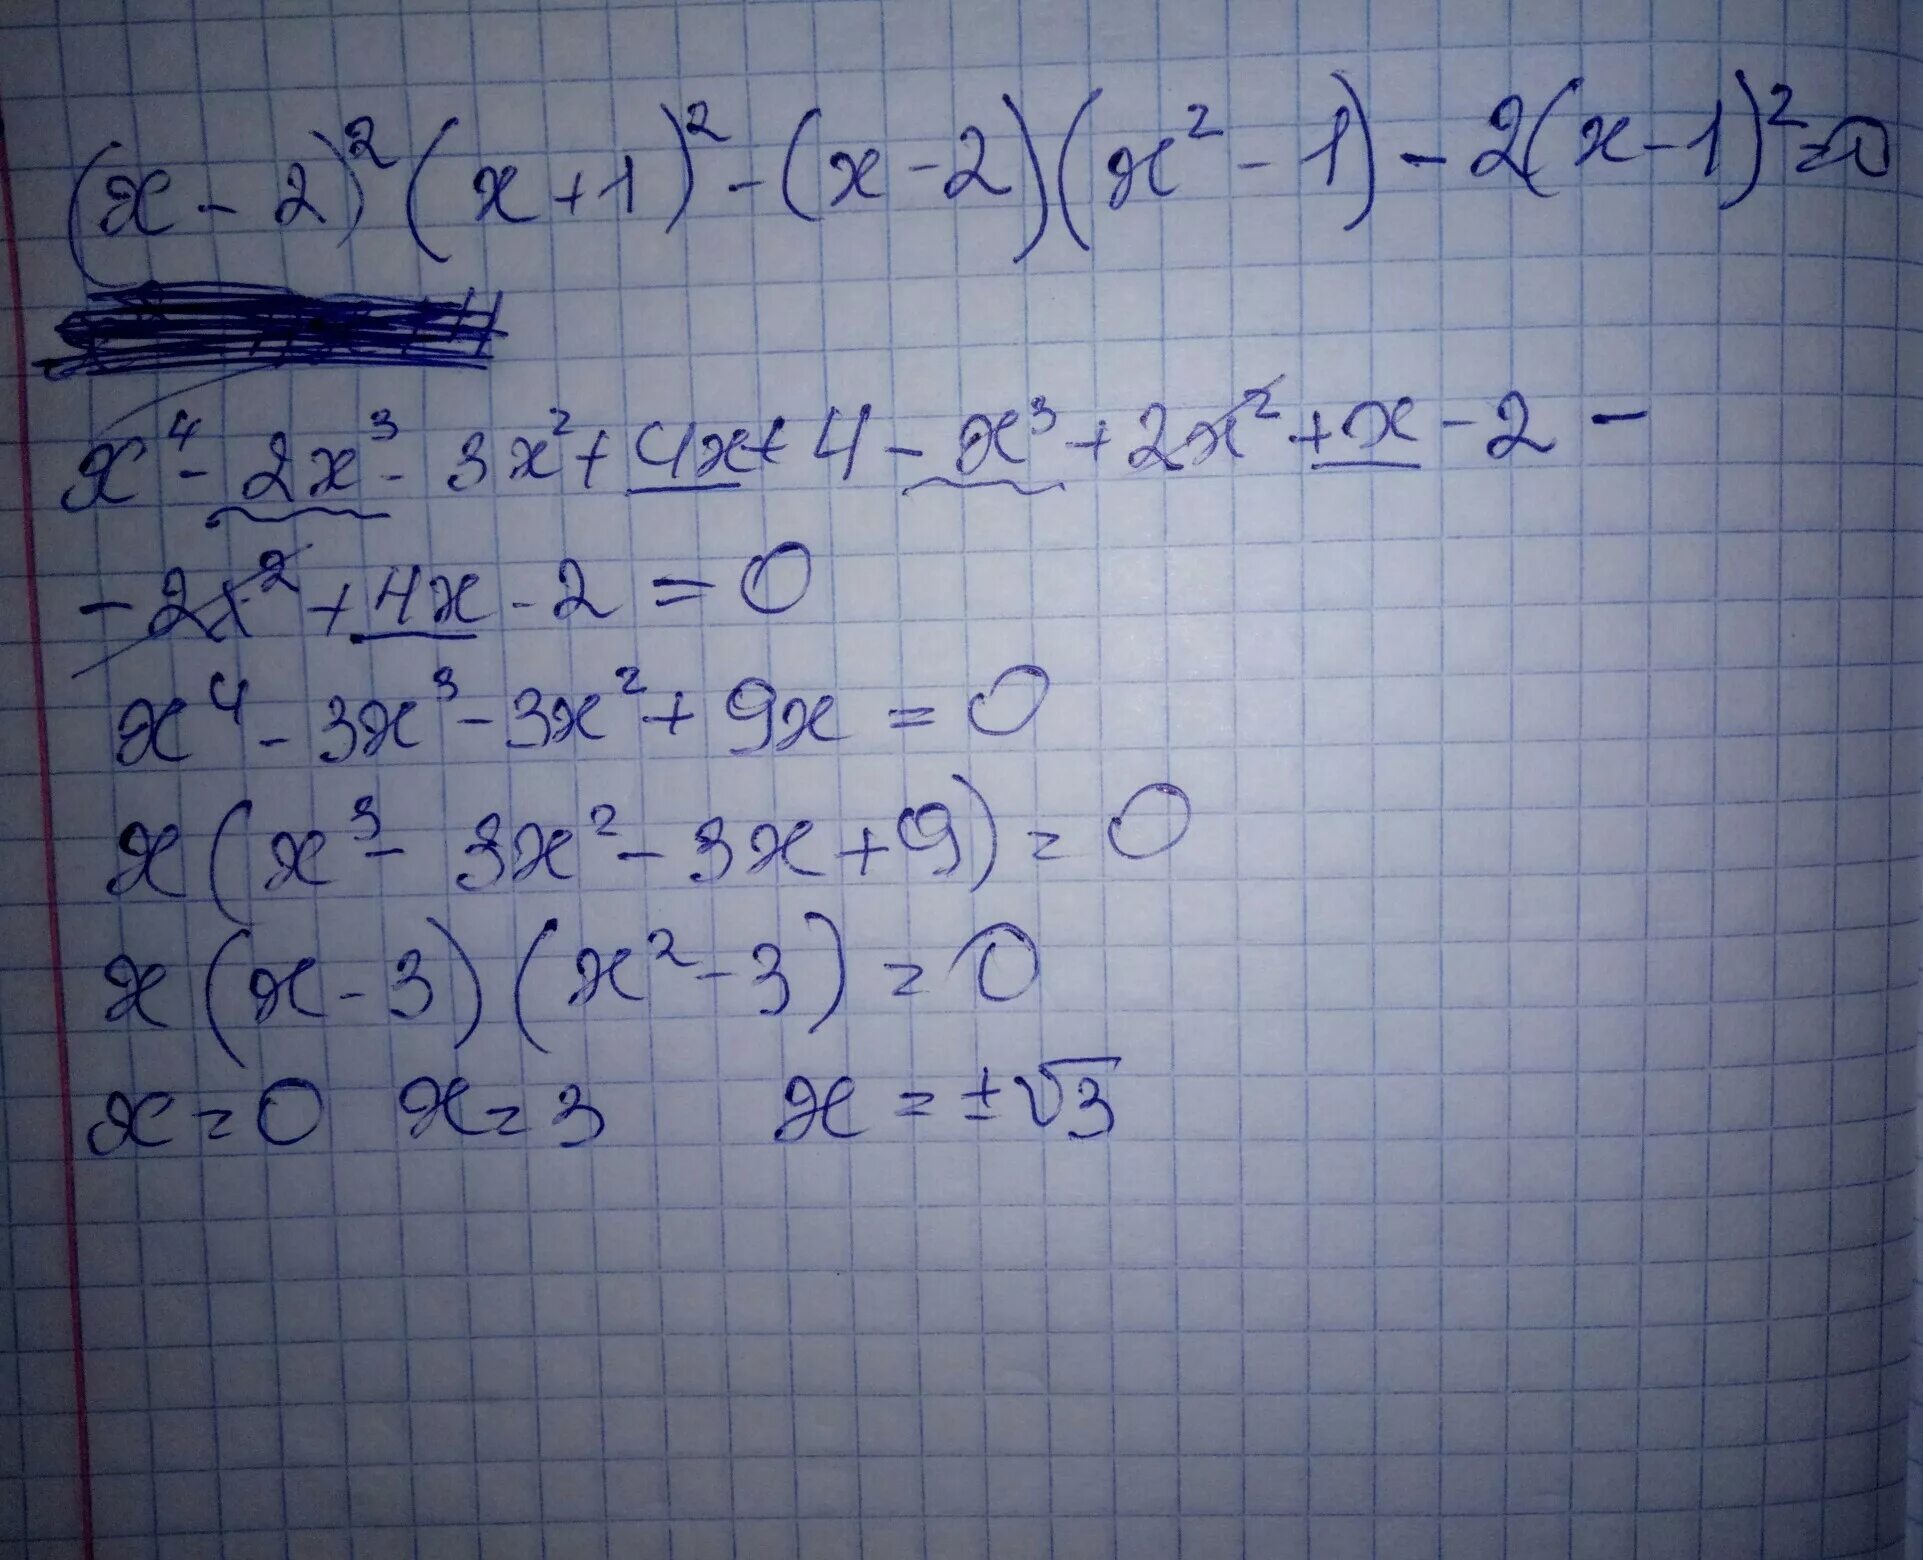 (x - 2)² (x + 1)² - (x - 2)(x² - 1) - 2(x - 1)² = 0
x⁴ - 2x³ - 3x² + 4x + 4 - x³ + 2x² + x - 2 -
- 2x² + 4x - 2 = 0
x⁴ - 3x³ - 3x² + 9x = 0
x(x³ - 3x² - 3x + 9) = 0
x(x - 3)(x² - 3) = 0
x = 0 x = 3 x = ±√3